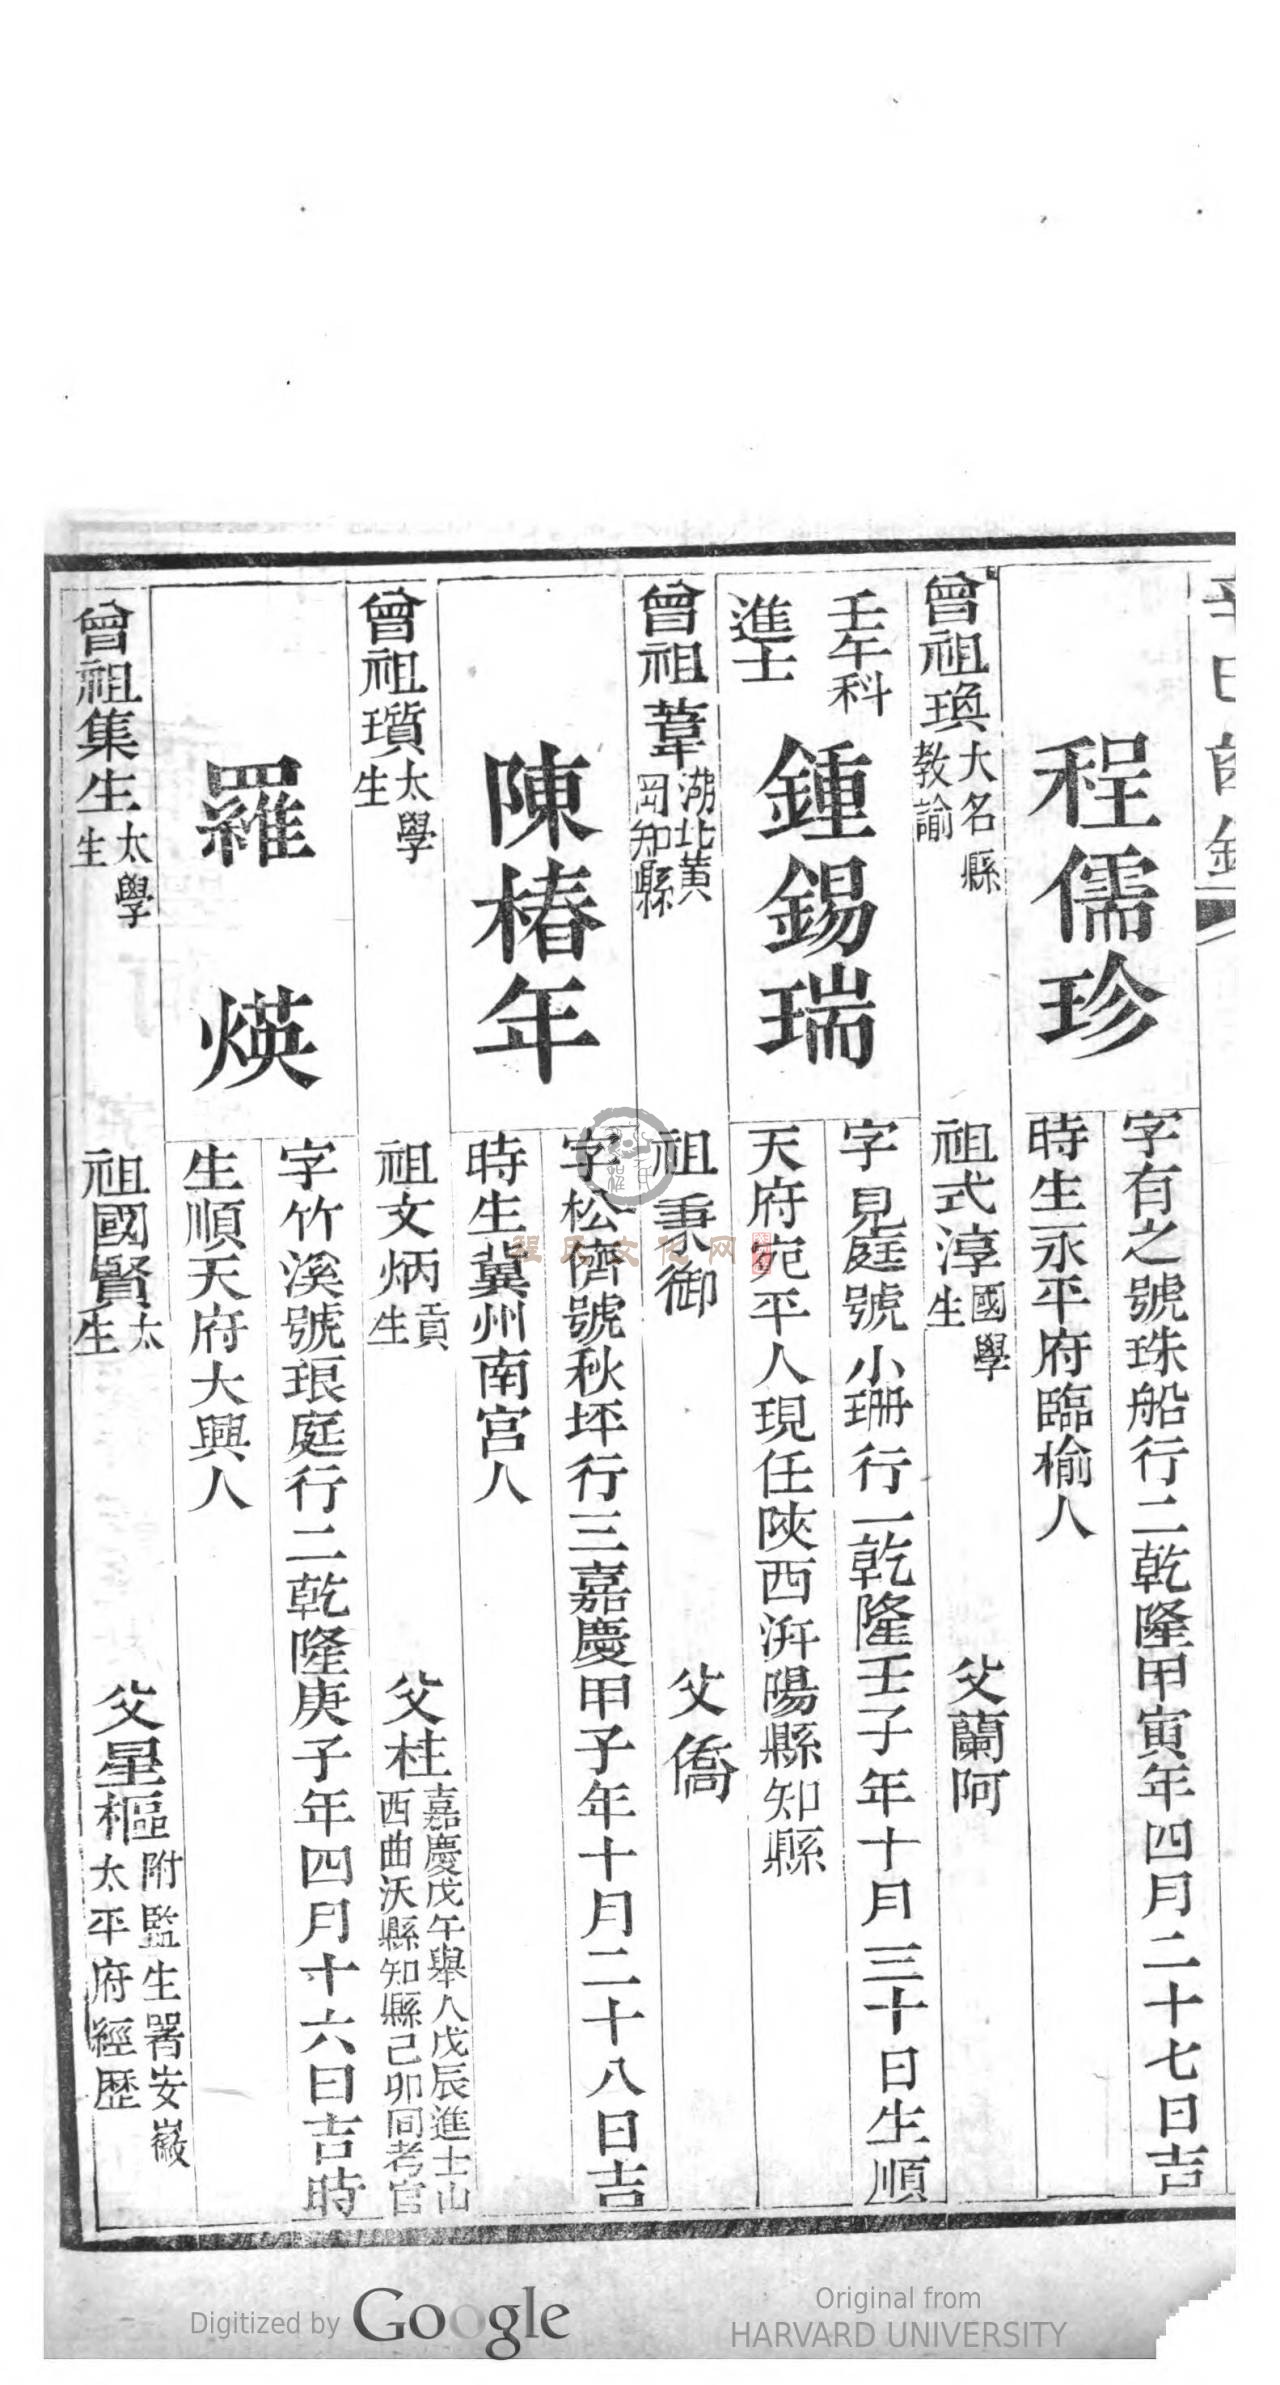 程儒珍
字有之號珠船行二乾隆甲寅年四月二十七日吉
時生永平府臨榆人
曾祖瑍大名縣教諭
祖式淳國學生
父蘭阿
壬午科
進士
鍾錫瑞
字見庭號小珊行一乾隆壬子年十月三十日生順
天府宛平人現任陝西汧陽縣知縣
曾祖葦湖北黃岡知縣
祖秉御
父僑
陳椿年
字松儕號秋坪行三嘉慶甲子年十月二十八日吉
時生冀州南宮人
曾祖瓆太學生
祖文炳貢生
父桂嘉慶戊午舉人戊辰進士山西曲沃縣知縣己卯同考官
羅煐
字竹溪號琅庭行二乾隆庚子年四月十六日吉時
生順天府大興人
曾祖集生太學生
祖國賢太生
父星樞附監生署安徽太平府經歷
程氏文化网
Digitized by Google
Original from
HARVARD UNIVERSITY